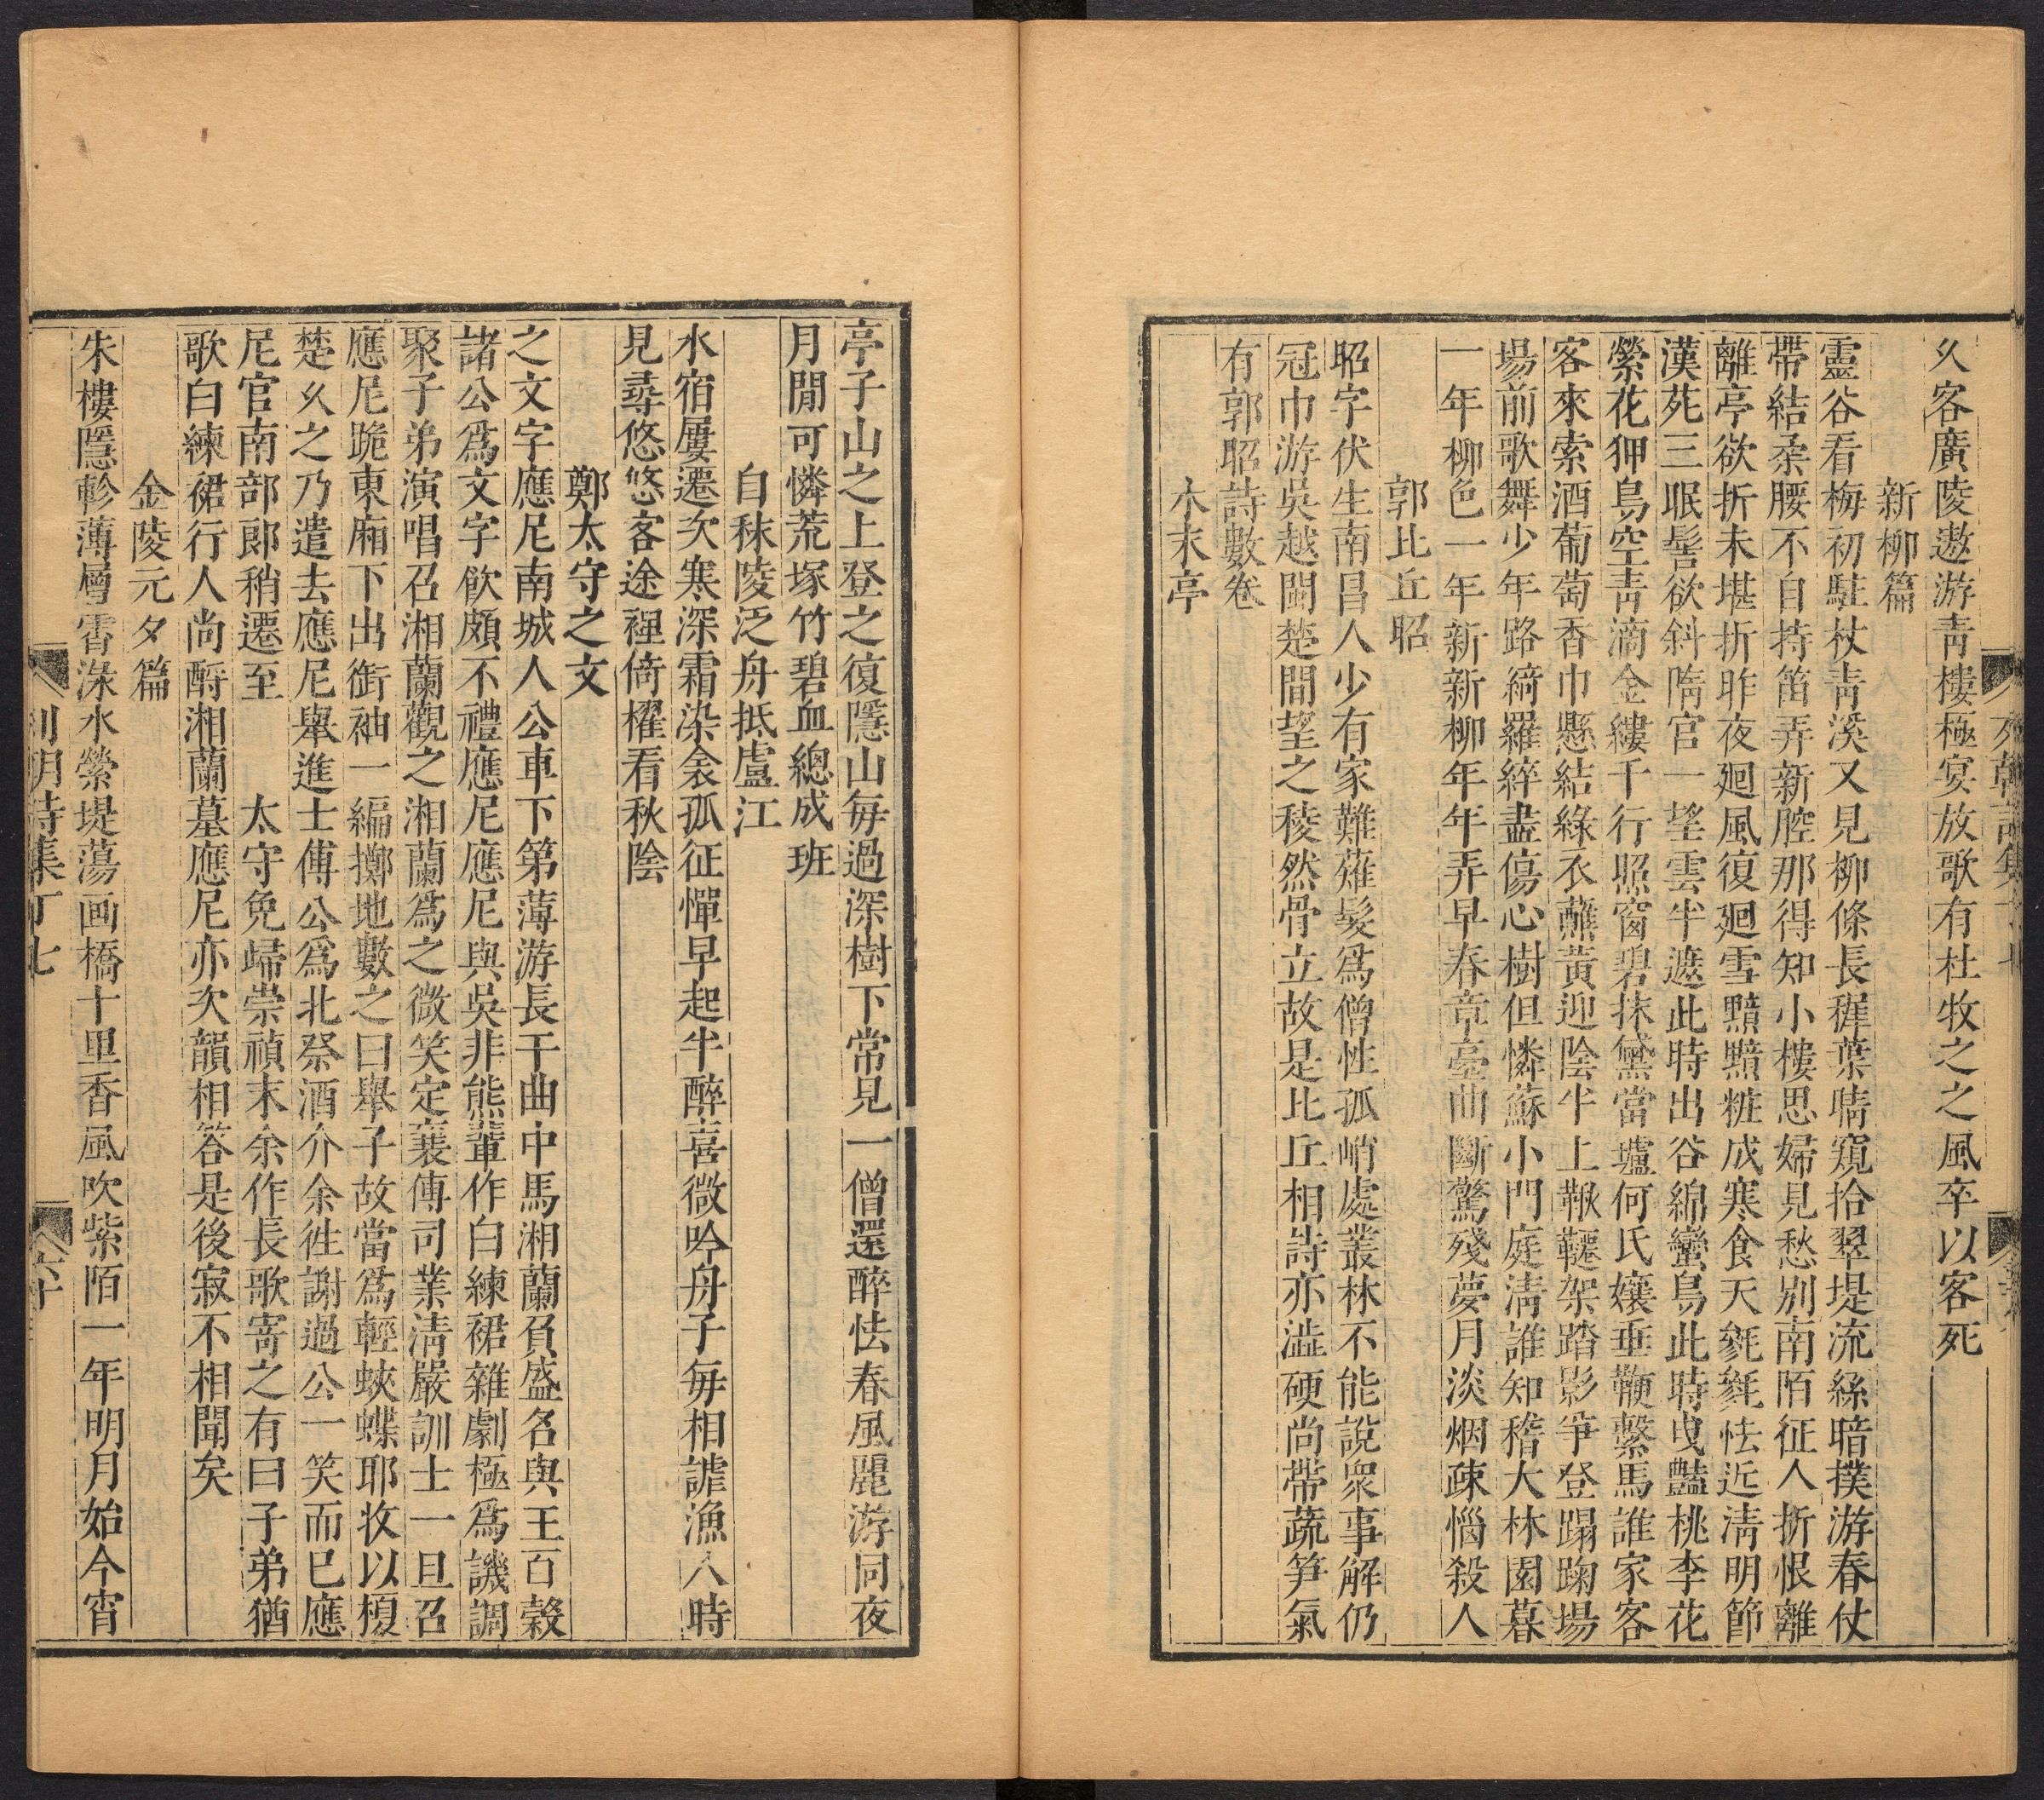 久客廣陵遨游青樓極宴放歌有杜牧之之風卒以客死
新柳篇
靈谷看梅初駐杖青溪又見柳條長穉葉晴窺拾翠堤流絲暗撲游春仗
帶結柔腰不自持笛弄新腔那得知小樓思婦見愁別南陌征人折恨離
離亭欲折未堪折昨夜廻風復廻雪黯黯粧成寒食天毿毿怯近淸明節
漢苑三眠髻欲斜隋官一望雲半遮此時出谷綿蠻鳥此時曳豔桃李花
縈花狎鳥空青滴金縷千行照窗碧抹黛當壚何氏孃垂鞭繫馬誰家客
客來索酒葡萄香巾懸結綠衣蘸黃迎陰半上鞦韆架踏影爭登蹋踘場
場前歌舞少年路綺羅綷盡傷心樹但憐蘇小門庭淸誰知稽大林園暮
一年柳色一年新新柳年年弄早春章臺曲斷驚殘夢月淡烟疎惱殺人
郭比丘昭
昭字伏生南昌人少有家難薙髮爲僧性孤峭處叢林不能說衆事解仍
冠巾游吳越閩楚間望之稜然骨立故是比丘相詩亦澁硬尚帶蔬笋氣
有郭昭詩數卷
木末亭
亭子山之上登之復隱山每過深樹下常見一僧還醉怯春風麗游同夜
月閒可憐荒塚竹碧血總成班
自秣陵泛舟抵盧江
水宿屢遷次寒深霜染衾孤征憚早起半醉喜微吟舟子每相謔漁人時
見尋悠悠客途裡倚櫂看秋陰
鄭太守之文
之文字應尼南城人公車下第薄游長干曲中馬湘蘭負盛名與王百穀
諸公爲文字飮頗不禮應尼應尼與吳非熊輩作白練裙雜劇極爲譏調
聚子弟演唱召湘蘭觀之湘蘭爲之微笑定襄傅司業淸嚴訓士一旦召
應尼跪東廂下出衒袖一編擲地數之曰舉子故當爲輕蛺蝶耶收以榎
楚久之乃遣去應尼舉進士傅公爲北祭酒介余徃謝過公一笑而已應
尼官南部郎稍遷至　　太守免歸崇禎末余作長歌寄之有曰子弟猶
歌白練裙行人尚酹湘蘭墓應尼亦次韻相答是後寂不相聞矣
金陵元夕篇
朱樓隱軫薄層霄淥水縈堤蕩画橋十里香風吹紫陌一年明月始今宵
列朝詩集丁七
六十